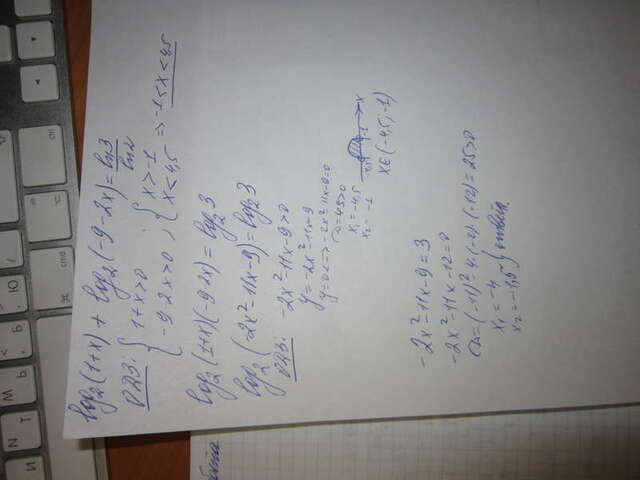 log₂(1+x) + log₂(-9-2x) = ln3/ln2
ОДЗ: { 1+x>0
-9-2x>0 , { x>-1
x<4,5 => -1<x<4,5
log₂(1+x)(-9-2x) = log₂3
log₂(-2x²-11x-9) = log₂3
ОДЗ: -2x²-11x-9>0
y=-2x²-11x-9
y=0 <=> -2x²-11x-9=0
D=49>0
x₁=-4,5
x₂=-1
x∈(-4,5;-1)
-2x²-11x-9=3
-2x²-11x-12=0
D=(-11)²-4·(-2)·(-12)=25>0
x₁=-4
x₂=-1,5 } ответ.
ctrl